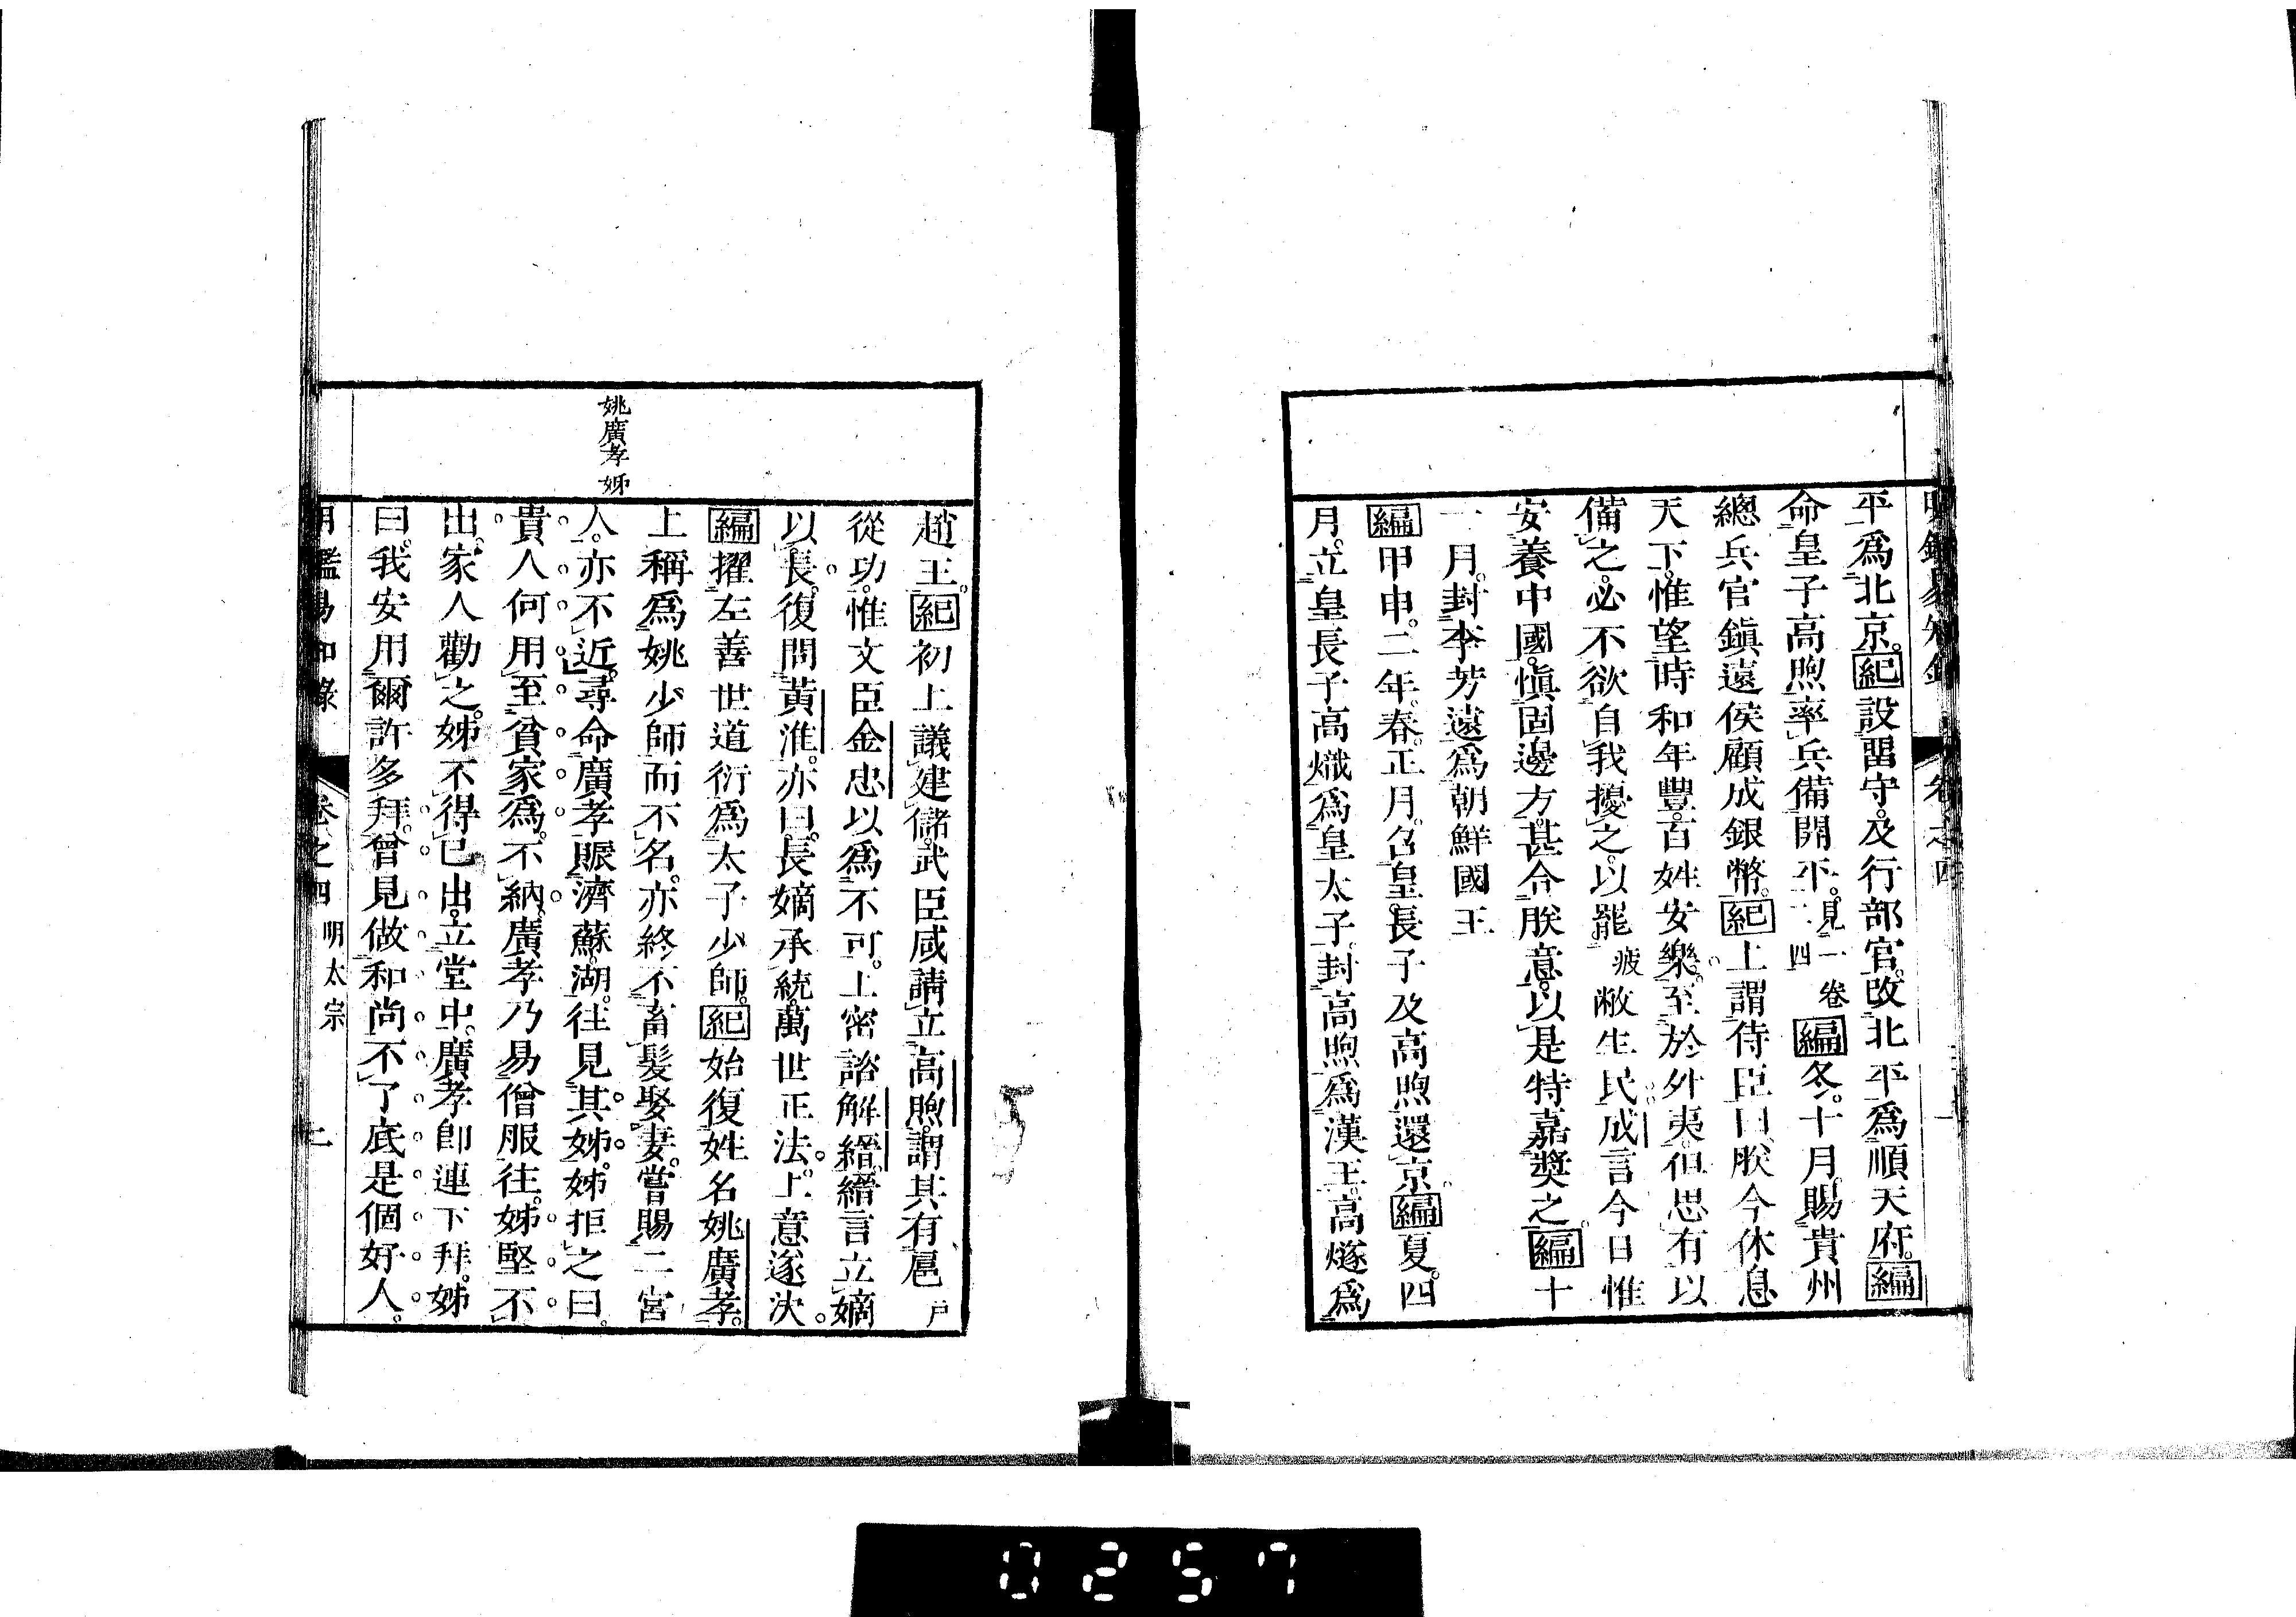 平爲北京。紀設留守。及行部官。改北平爲順天府。編
命皇子高煦率兵備開平。見一卷二四編冬。十月。賜貴州
總兵官鎭遠侯顧成銀幣。紀上謂侍臣曰。朕今休息
天下。惟望時和年豐。百姓安樂。至於外夷。但思有以
備之。必不欲自我擾之。以罷疲敝生民。成言今日惟
安養中國。愼固邊方。甚合朕意。以是特嘉奬之。編十
一月。封李芳遠爲朝鮮國王
編甲申。二年。春。正月。召皇長子及高煦還京。編夏。四
月。立皇長子高熾爲皇太子。封高煦爲漢王。高燧爲
姚廣孝姊
趙王。紀初上議建儲。武臣咸請立高煦。謂其有扈戶
從功。惟文臣金忠以爲不可。上密諮解縉。縉言立嫡
以長。復問黃淮。亦曰。長嫡承統。萬世正法。上意遂決。
編擢左善世道衍爲太子少師。紀始復姓名姚廣孝。
上稱爲姚少師而不名。亦終不畜髮娶妻。嘗賜二宮
人。亦不近。尋命廣孝賑濟蘇湖。往見其姊。姊拒之曰。
貴人何用至貧家爲。不納。廣孝乃易僧服往。姊堅不
出。家人勸之。姊不得已出。立堂中。廣孝卽連下拜。姊
曰。我安用爾許多拜。曾見做和尚不了底是個好人。
明鑑易知錄 卷之四 明太宗 二